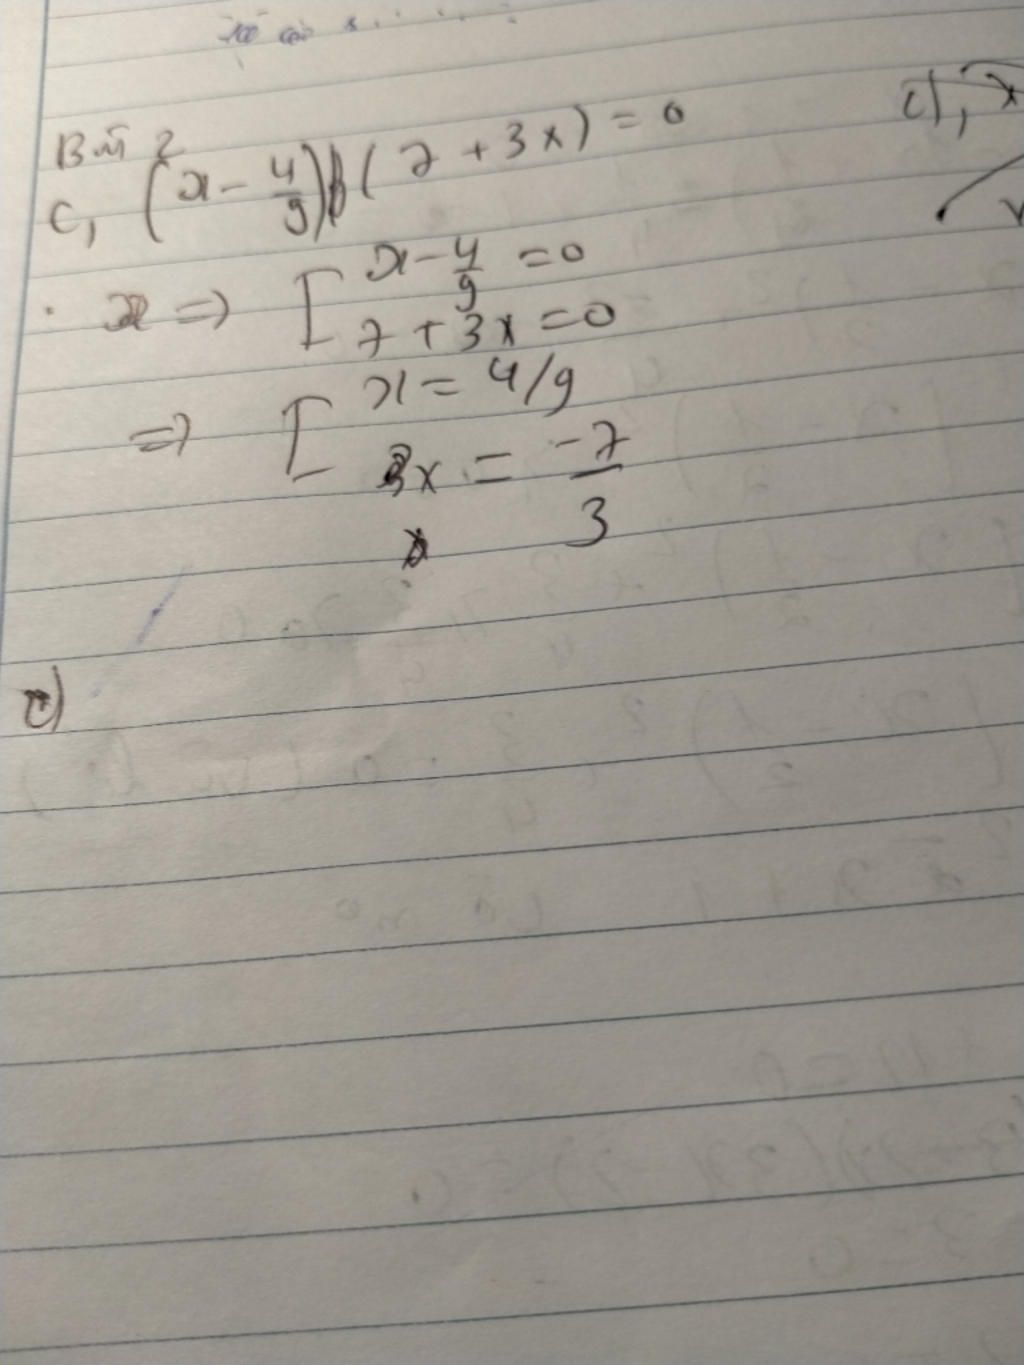 Bài 2
c, (x - 4/9)(7 + 3x) = 0
=> [ x - 4/9 = 0
7 + 3x = 0
=> [ x = 4/9
3x = -7/3
e)
d), x